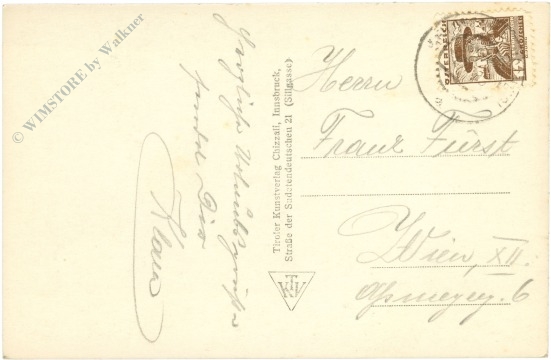 © WIMSTORE by Walkner
Herzliche Urlaubsgrüße
sendet Dir
Klaus
Tiroler Kunstverlag Chizzali, Innsbruck,
Straße der Sudetendeutschen 21 (Sillgasse)
TKV
ÖSTERREICH
Herrn
Franz Fürst
Wien, XII.
6